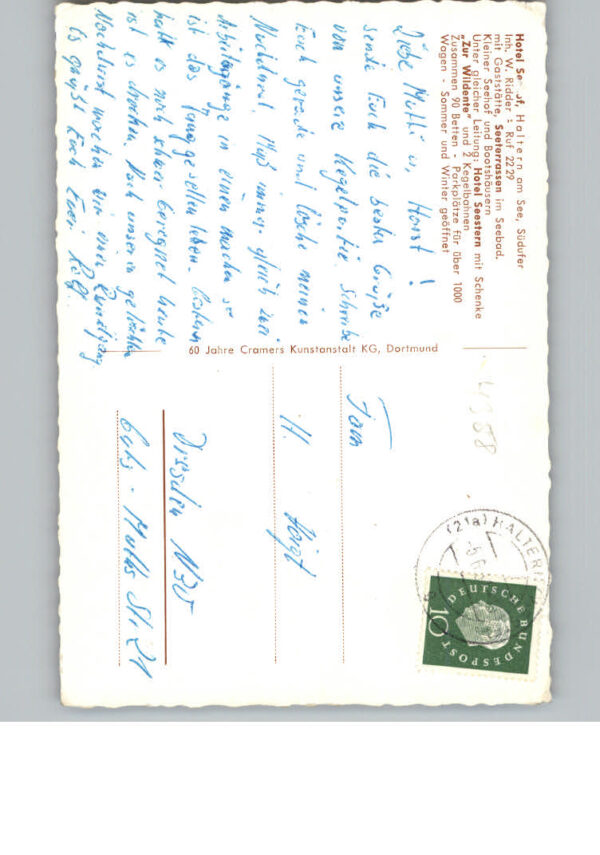 Hotel Se f, Haltern am See, Südufer
Inh. W. Ridder : Ruf 22 29
mit Gaststätte, Seeterrassen im Seebad.
Kleiner Seehof und Bootshäusern
Unter gleicher Leitung: Hotel Seestern mit Schenke
„Zur Wildente" und 2 Kegelbahnen
Zusammen 90 Betten - Parkplätze für über 1000
Wagen - Sommer und Winter geöffnet
Liebe Mutti u. Horst!
sende Euch die besten Grüße
von unsere Kegelpartie. Schreibe
Euch gerade und lösche meinen
Muß immer gleich zwei
Arbeitsgänge in einen machen so
ist das Junggesellenleben. Gestern
hatt es noch schwer geregnet heute
ist es trocken. Nach unseren
machen wir einen Rundgang.
Es grüßt Euch Euer Rolf.
60 Jahre Cramers Kunstanstalt KG, Dortmund
Fam
H.
Dresden N30
Muths Str 21
(21a) HALTERN
DEUTSCHE BUNDESPOST
10